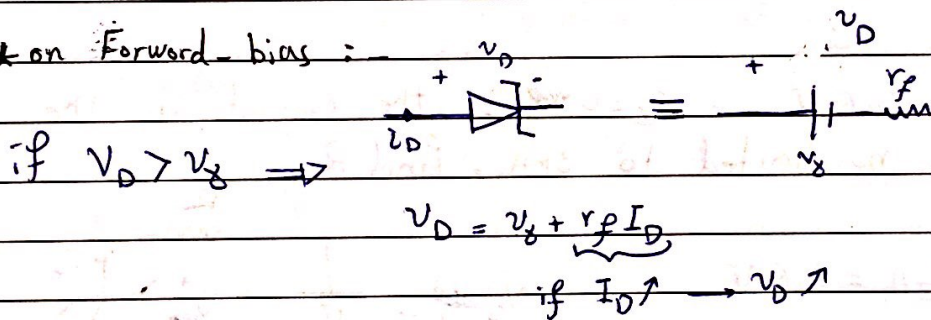 * on Forword-bias :-
+ v_D -
i_D
≡
+ v_D
r_f
v_γ
if V_D > V_γ ⇒
v_D = v_γ + r_f I_D
if I_D ↗ → v_D ↗